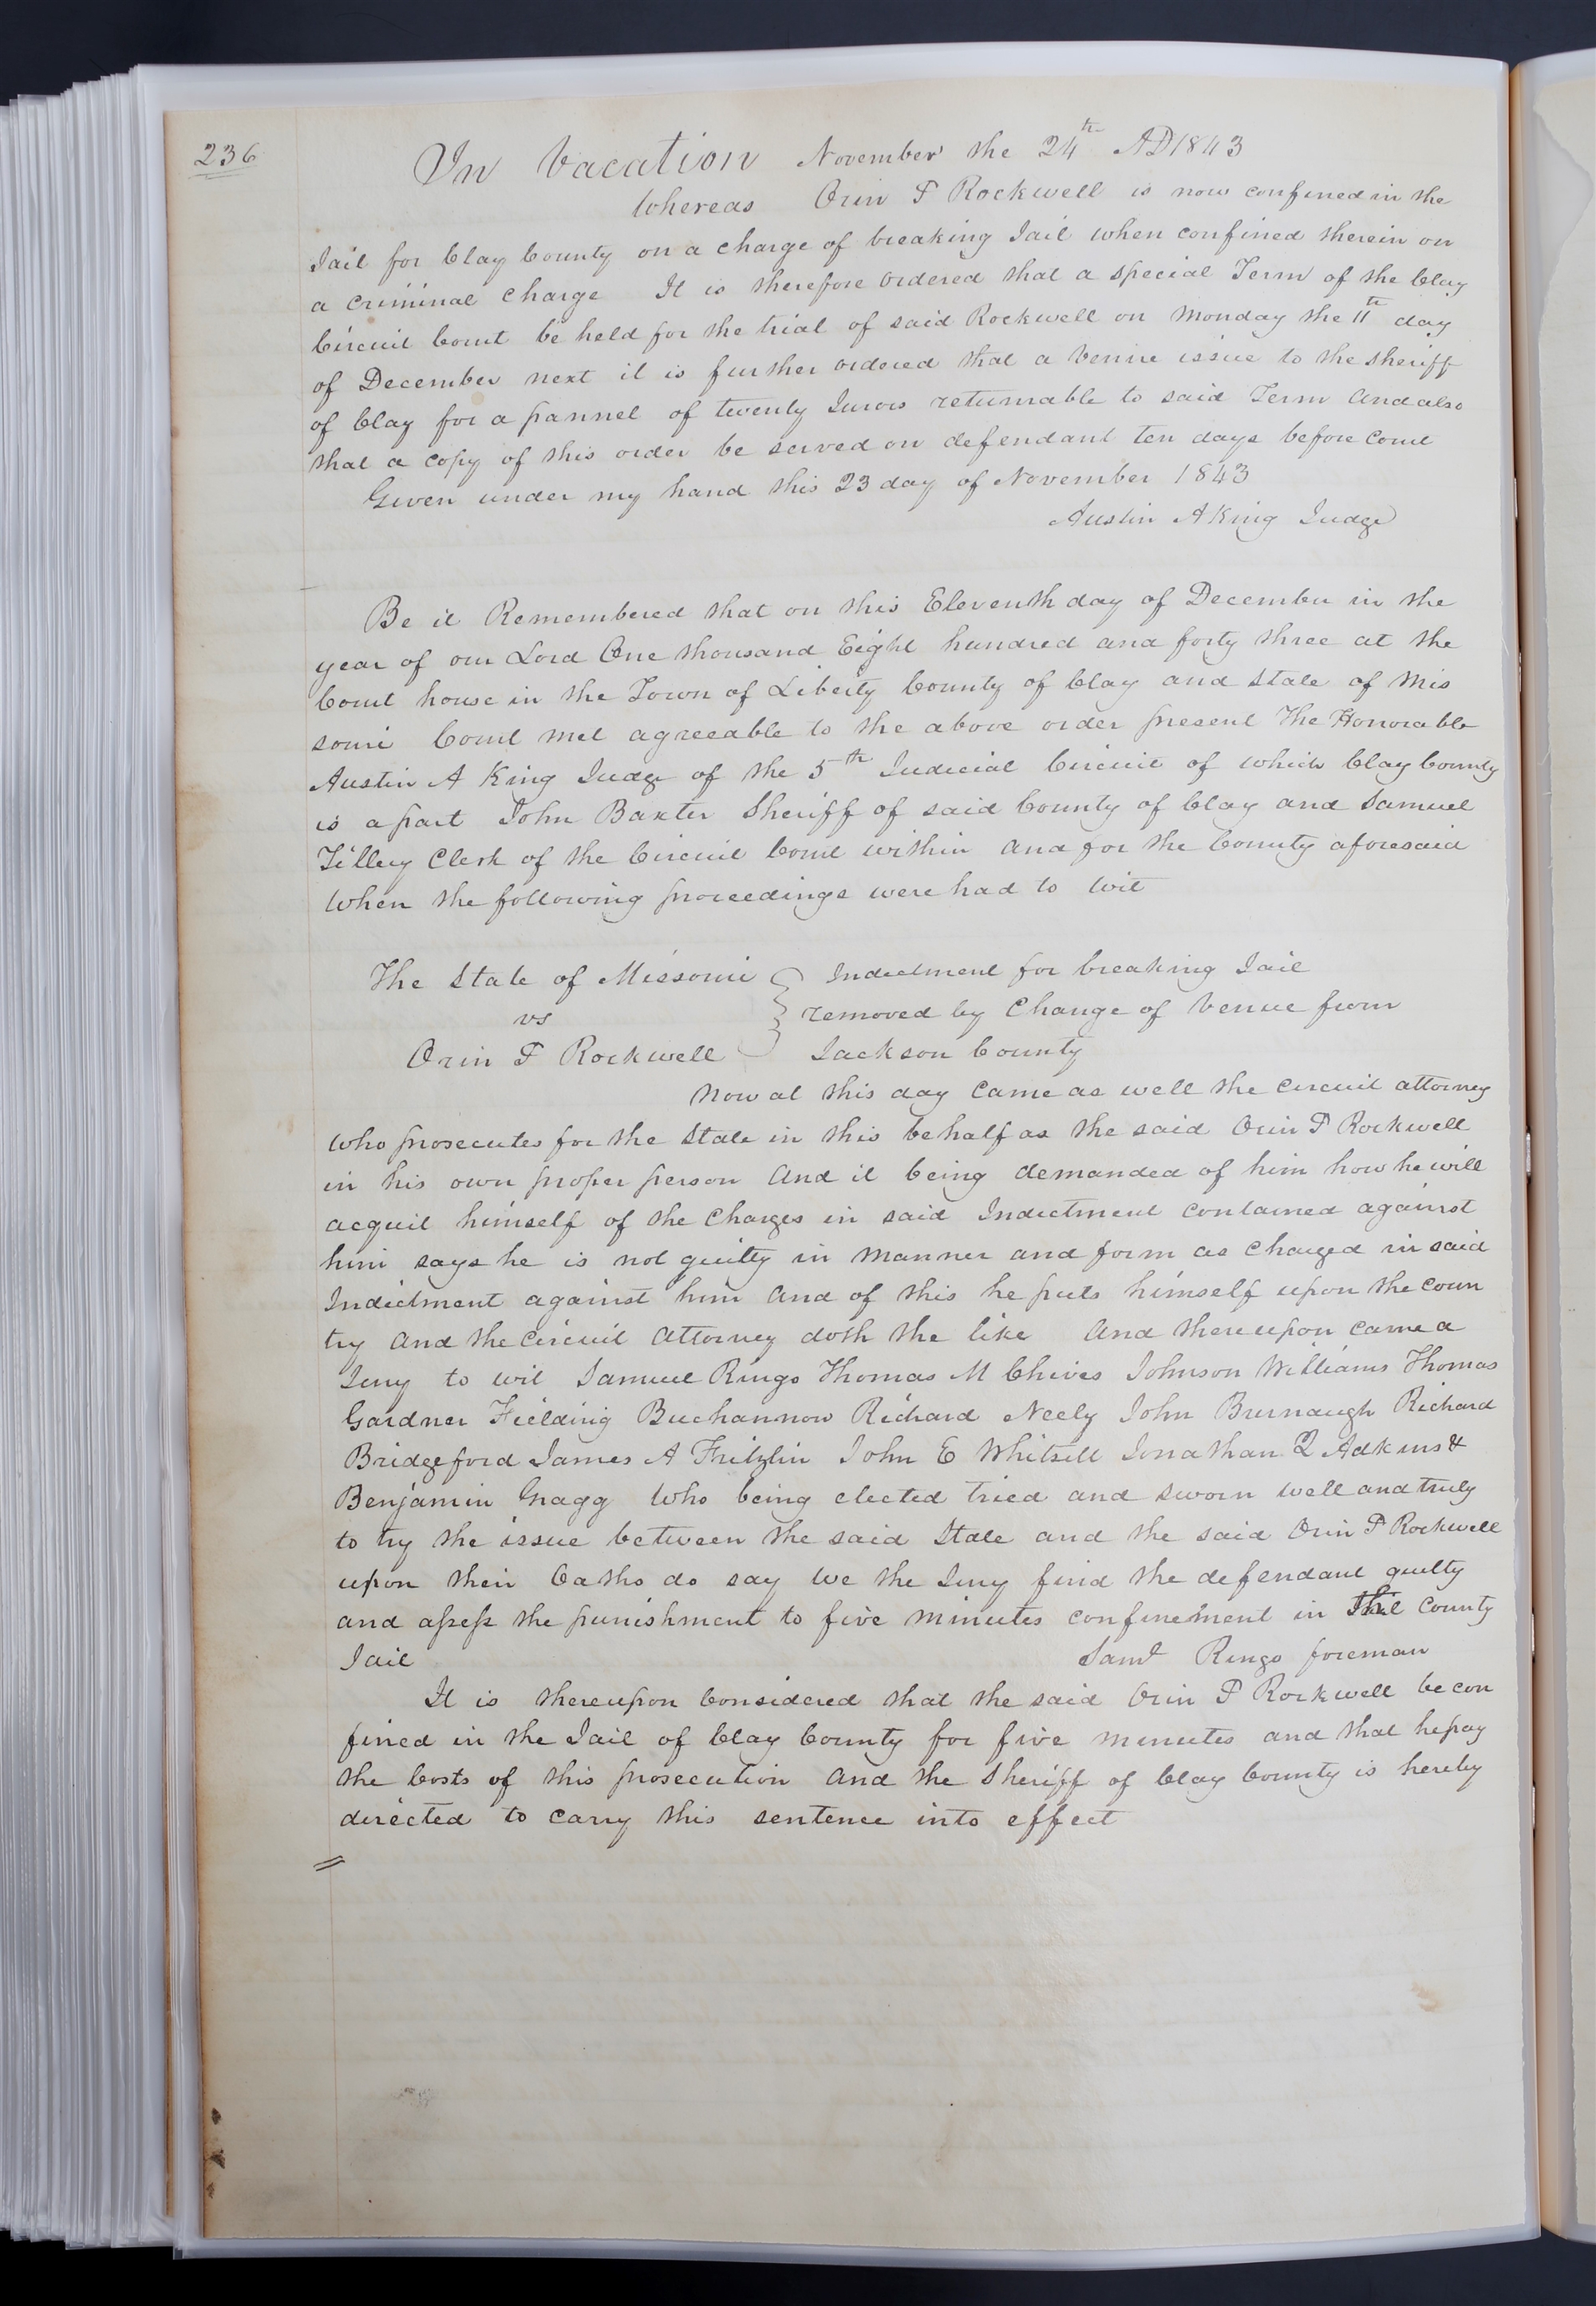 236
In Vacation November the 24th AD 1843
Whereas Orin P Rockwell is now confined in the
Jail for Clay County on a charge of breaking Jail when confined therein on
a criminal charge It is therefore ordered that a special Term of the Clay
Circuit Court be held for the trial of said Rockwell on Monday the 11th day
of December next it is further ordered that a Venire issue to the sheriff
of Clay for a pannel of twenty Jurors returnable to said Term And also
that a copy of this order be served on defendant ten days before Court
Given under my hand this 23 day of November 1843
Austin A King Judge
Be it Remembered that on this Eleventh day of December in the
year of our Lord One thousand Eight hundred and forty three at the
Court house in the Town of Liberty County of Clay and State of Mis
souri Court met agreeable to the above order present The Honorable
Austin A King Judge of the 5th Judicial Circuit of which Clay County
is a part John Baxter Sheriff of said County of Clay and Samuel
Tillery Clerk of the Circuit Court within and for the County aforesaid
When the following proceedings were had to wit
The State of Missouri } Indictment for breaking Jail
vs removed by Change of Venue from
Orin P Rockwell Jackson County
Now at this day came as well the circuit attorney
who prosecutes for the State in this behalf as the said Orin P Rockwell
in his own proper person And it being demanded of him how he will
acquit himself of the Charges in said Indictment contained against
him says he is not guilty in manner and form as charged in said
Indictment against him And of this he puts himself upon the coun
try And the Circuit Attorney doth the like And thereupon came a
Jury to wit Samuel Ringo Thomas M Chives Johnson Williams Thomas
Gardner Fielding Buchannon Richard Neely John Burnaugh Richard
Bridgeford James A Fritzlin John E Whitsell Jonathan Q Adkins &
Benjamin Gragg Who being elected tried and sworn well and truly
to try the issue between the said State and the said Orin P Rockwell
upon their Oaths do say We the Jury find the defendant guilty
and assess the punishment to five minutes confinement in the County
Jail Saml Ringo foreman
It is thereupon Considered that the said Orin P Rockwell be con
fined in the Jail of Clay County for five minutes and that he pay
the Costs of this prosecution And the Sheriff of Clay County is hereby
directed to carry this sentence into effect